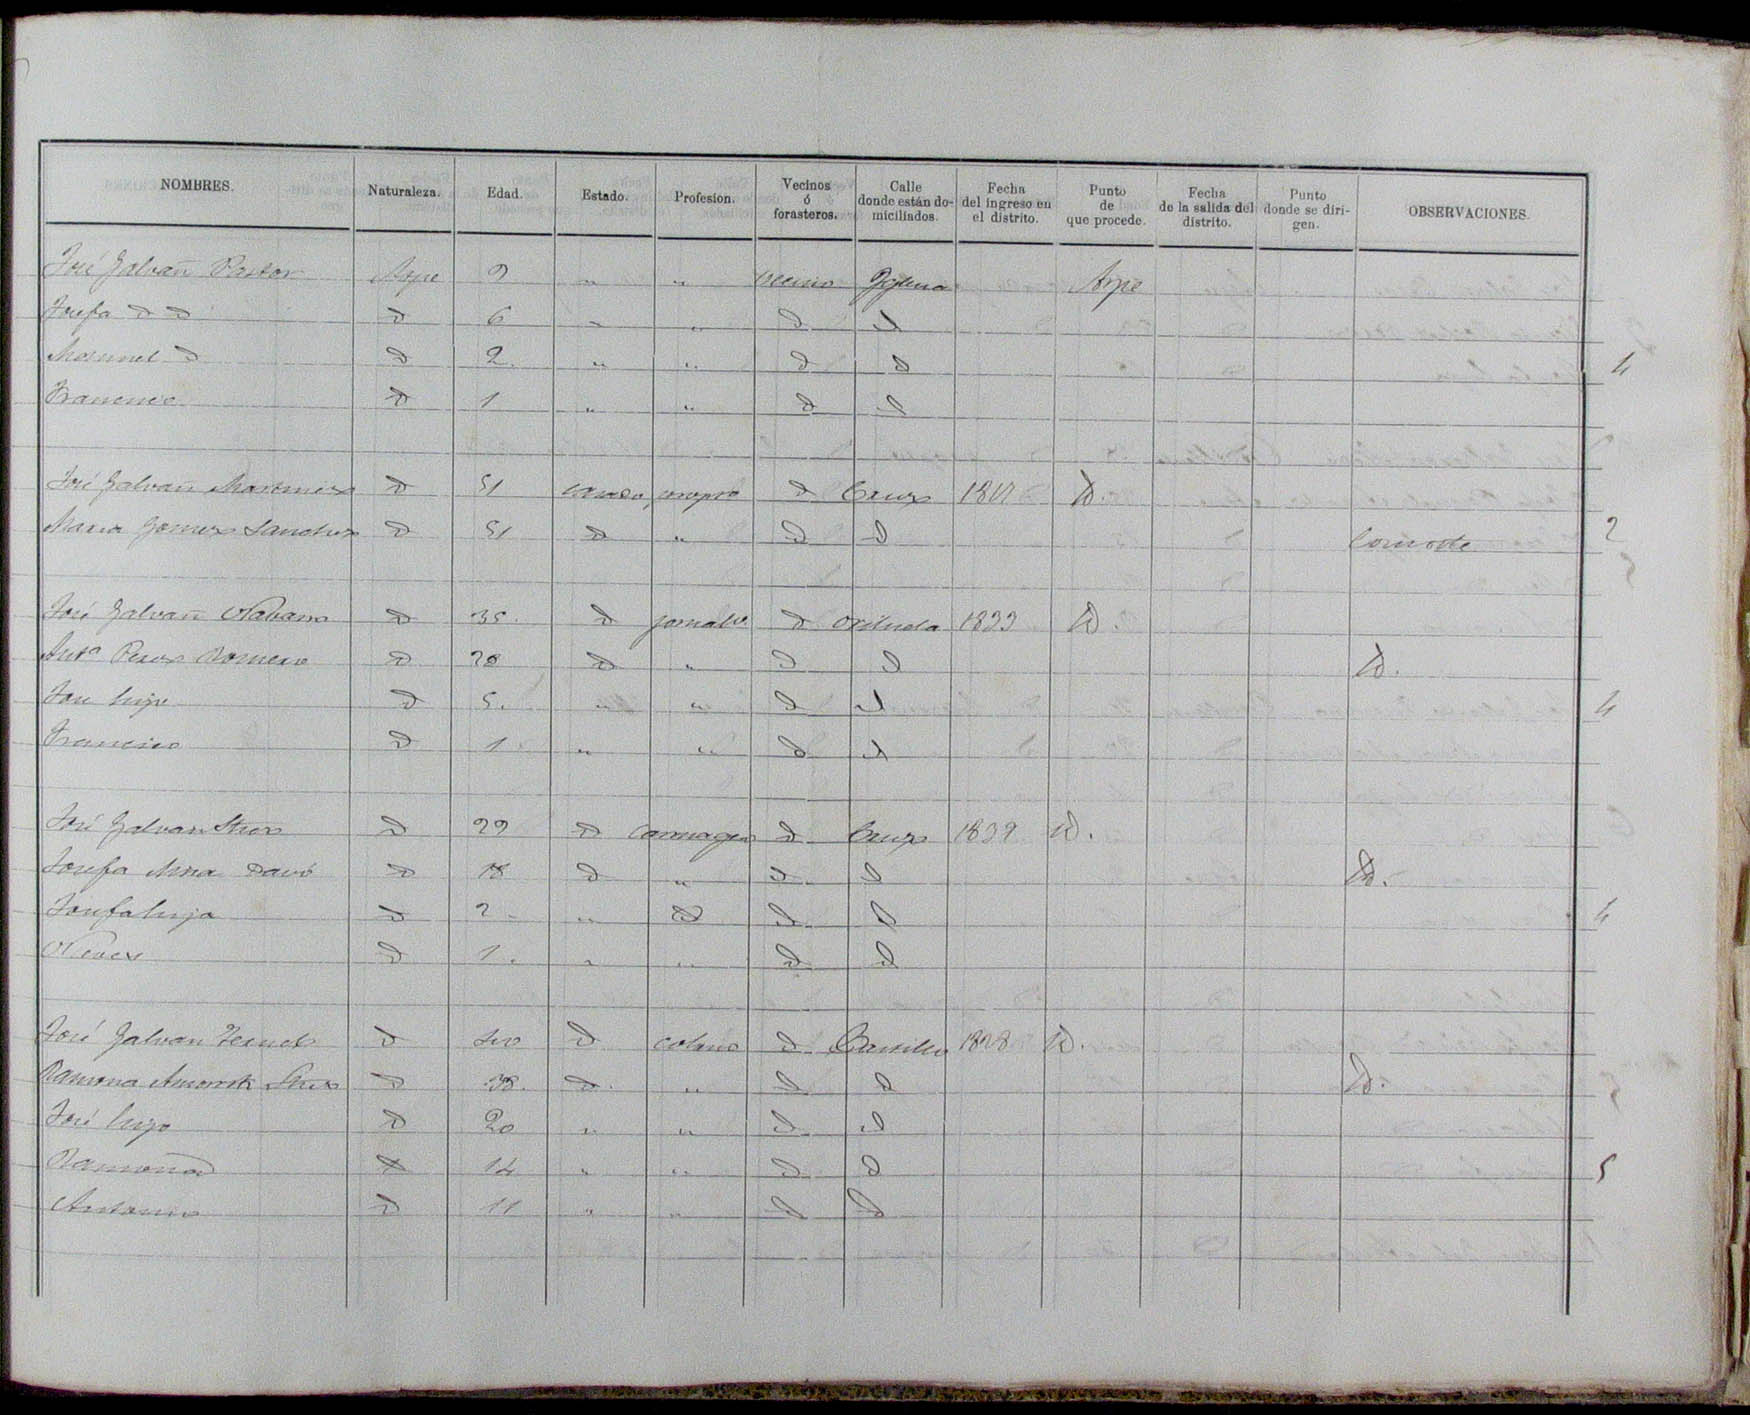 NOMBRES. Naturaleza. Edad. Estado. Profesion. Vecinos ó forasteros. Calle donde están domiciliados. Fecha del ingreso en el distrito. Punto de que procede. Fecha de la salida del distrito. Punto donde se dirigen. OBSERVACIONES.
José Galvañ Pastor Aspe 9 " " vecino Yglesia Aspe
Josefa D D D 6 " " D D
Manuel D D 2 " " D D 4
Francisco D 1 " " D D
José Galvañ Martinez D 51 casado D Cruz D.
Maria Gomez Sanchez D 51 D " D D Consorte 2
José Galvañ Navarro D 35 D jornalo. D Orihuela 1833 D.
Anta Perez Romero D 28 D " D D D.
Jose hijo D 5. " " D D 4
Francisco D 1 " " D D
José Galvan D 29 D D Cruz 1839 D.
Josefa Mira Davó D 18 D " D D D.
Josefa hija D 2 " D D D 4
Nieves D 1. " " D D
José Galvan D D colono D Castillo 1828 D.
Ramona D 38. D. " D D D.
José hijo D 20 " " D D
Ramona D D 14 " " D D 5
Antonio D 11 " " D D